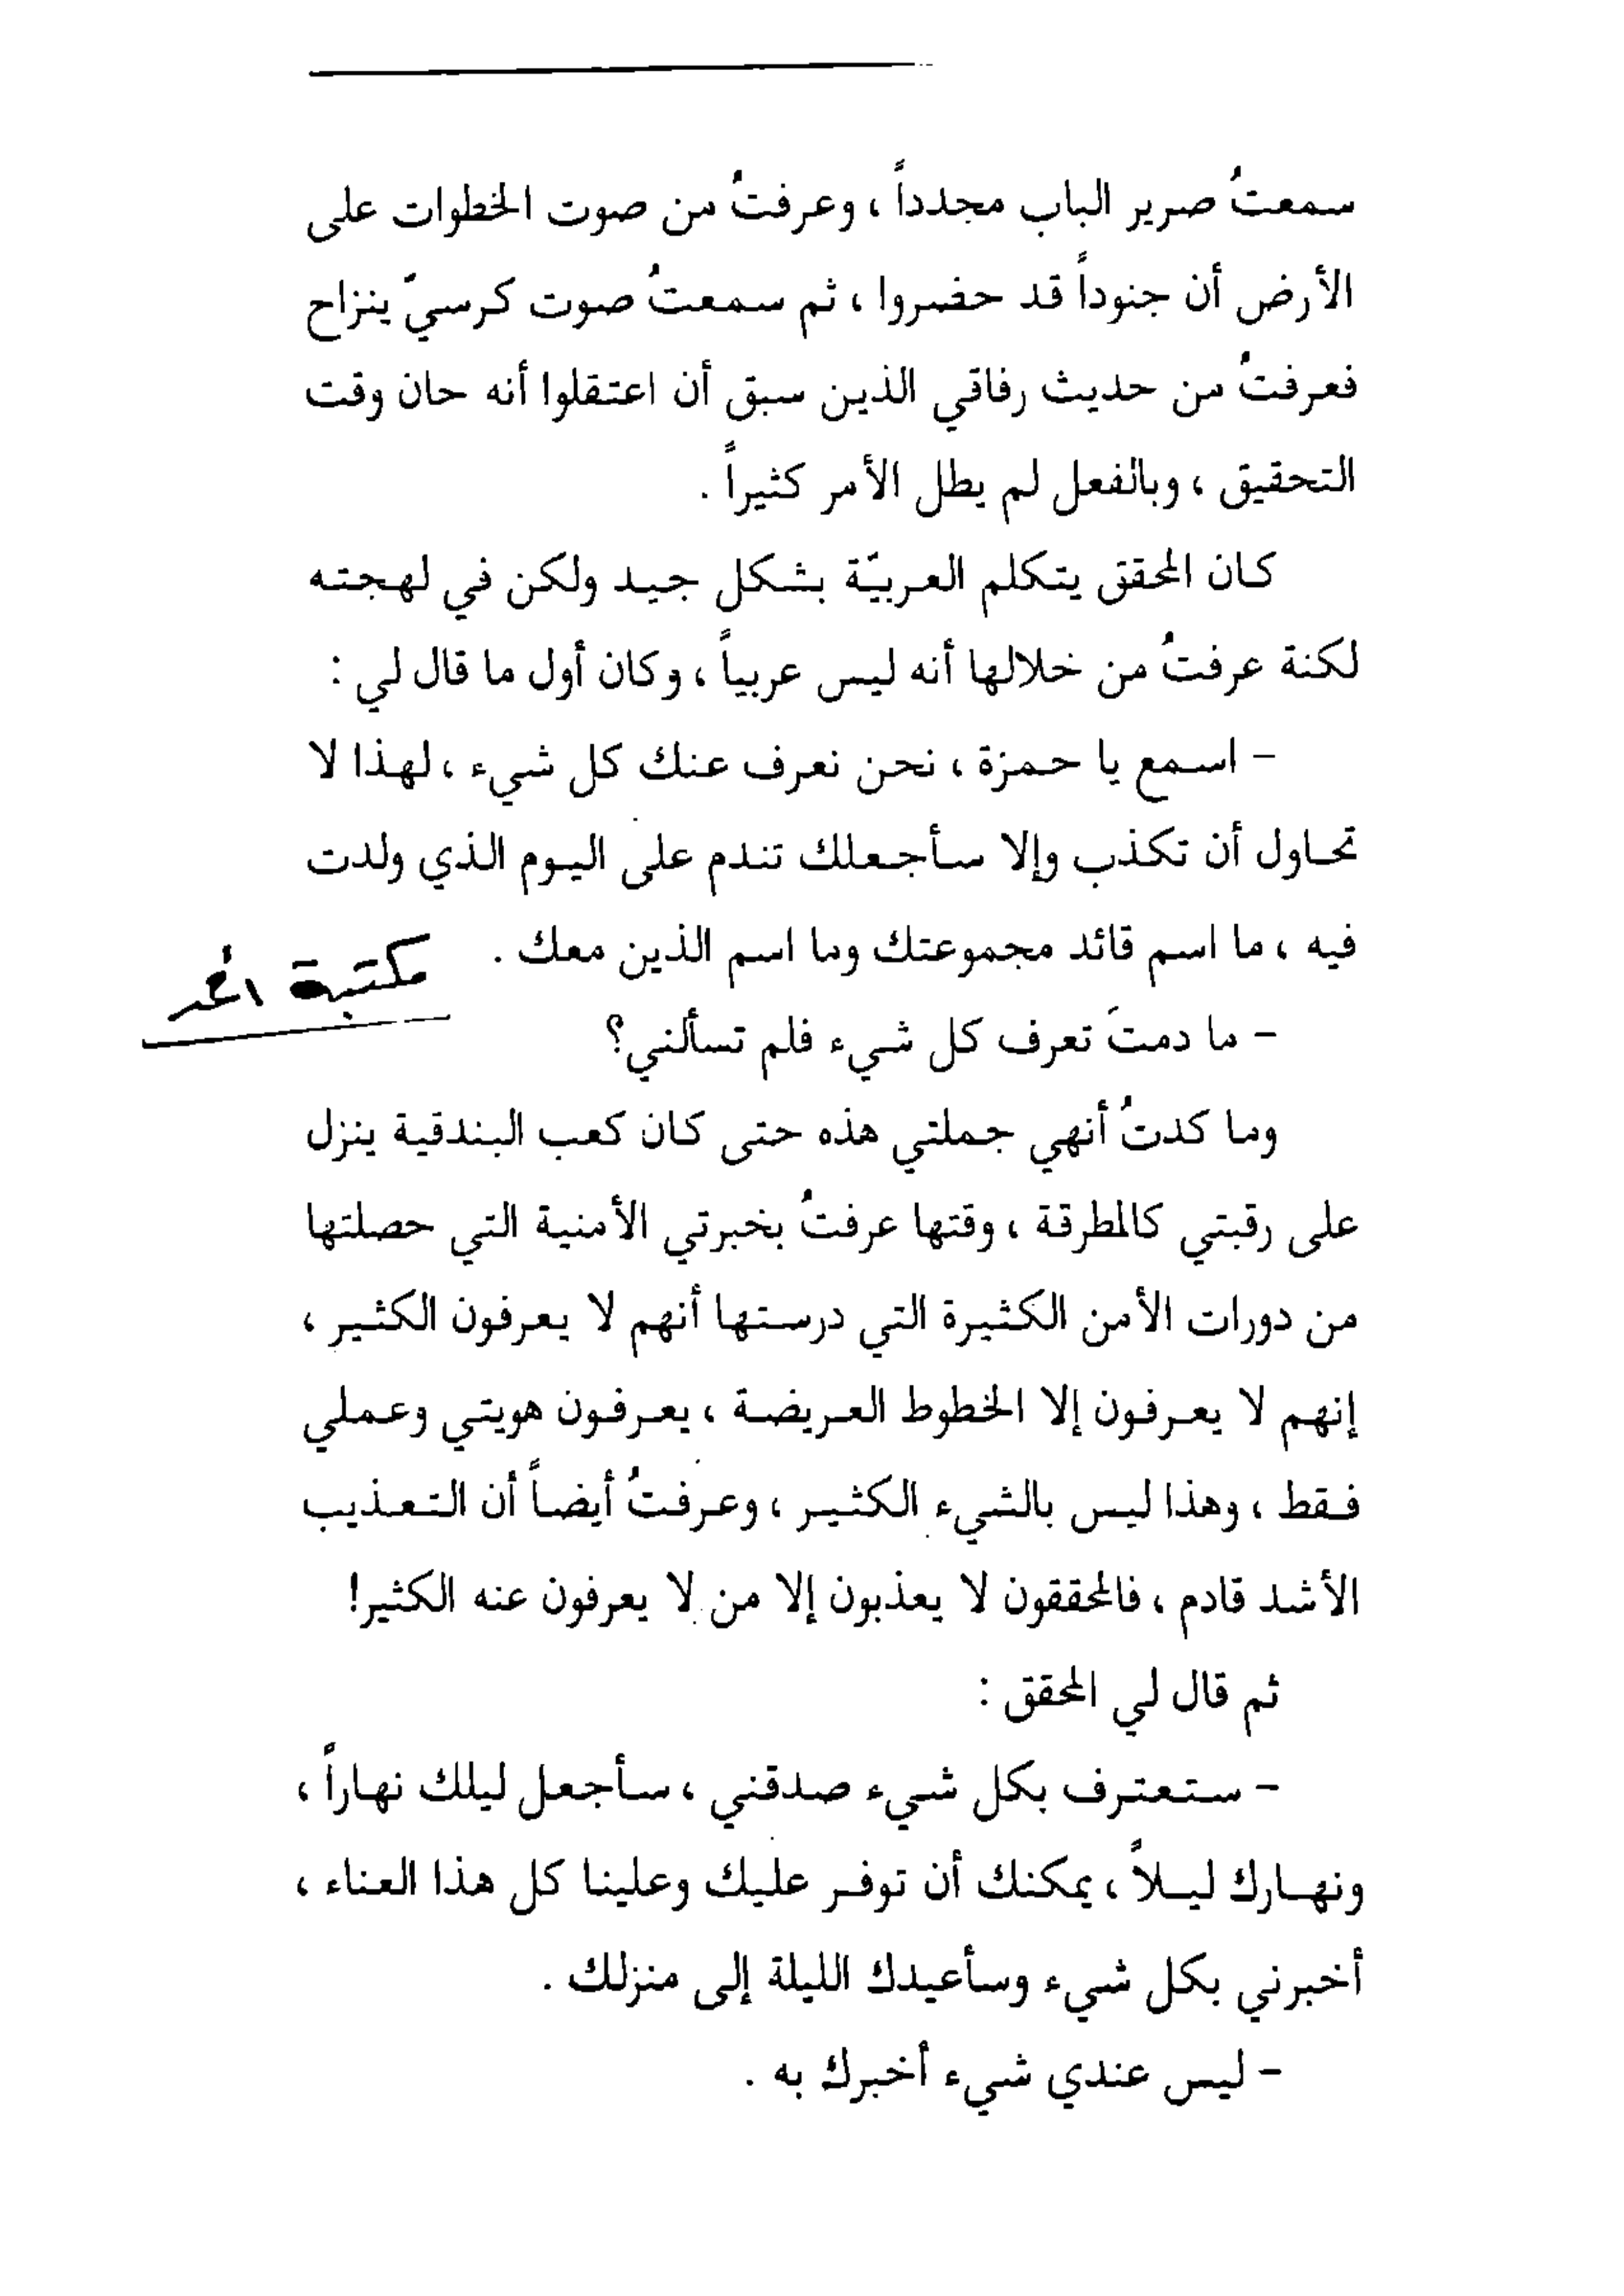 سمعتُ صرير الباب مجدداً ، وعرفتُ من صوت الخطوات على
الأرض أن جنوداً قد حضروا ، ثم سمعتُ صوت كرسيّ ينزاح
فعرفتُ من حديث رفاقي الذين سبق أن اعتقلوا أنه حان وقت
التحقيق ، وبالفعل لم يطل الأمر كثيراً .
كان المحقق يتكلم العربيّة بشكل جيد ولكن في لهجته
لكنة عرفتُ من خلالها أنه ليس عربياً ، وكان أول ما قال لي :
- اسمع يا حمزة ، نحن نعرف عنك كل شيء ، لهذا لا
تحاول أن تكذب وإلا سأجعلك تندم على اليوم الذي ولدت
فيه ، ما اسم قائد مجموعتك وما اسم الذين معك .
مكتبة
- ما دمتَ تعرف كل شيء فلم تسألني؟
وما كدتُ أنهي جملتي هذه حتى كان كعب البندقية ينزل
على رقبتي كالمطرقة ، وقتها عرفتُ بخبرتي الأمنية التي حصلتها
من دورات الأمن الكثيرة التي درستها أنهم لا يعرفون الكثير ،
إنهم لا يعرفون إلا الخطوط العريضة ، يعرفون هويتي وعملي
فقط ، وهذا ليس بالشيء الكثير ، وعرفتُ أيضاً أن التعذيب
الأشد قادم ، فالمحققون لا يعذبون إلا من لا يعرفون عنه الكثير!
ثم قال لي المحقق :
- ستعترف بكل شيء صدقني ، سأجعل ليلك نهاراً ،
ونهارك ليلاً ، يمكنك أن توفر عليك وعلينا كل هذا العناء ،
أخبرني بكل شيء وسأعيدك الليلة إلى منزلك .
- ليس عندي شيء أخبرك به .